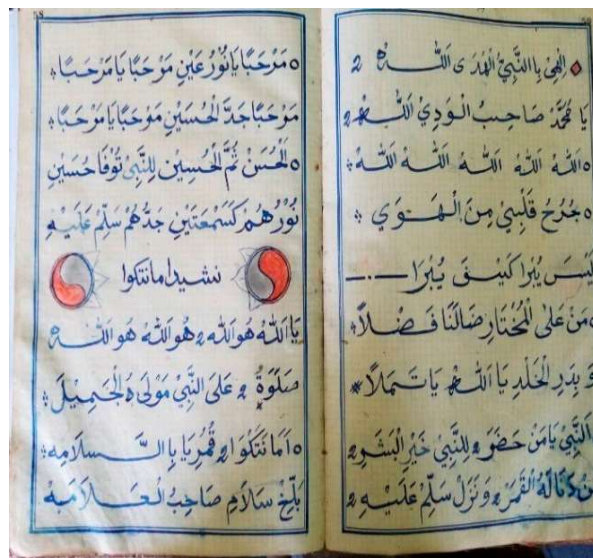 اِلٰهِىْ بِا النَّبِيْ اَلْهُدَى اَللّٰهْ 2
يَا مُحَمَّدْ صَاحِبُ الْوَدِيْ اَللّٰهْ 2
اَللّٰهُ اَللّٰهُ اَللّٰهُ اَللّٰهُ اَللّٰهْ
جُرُحْ قَلْبِيْ مِنَ الْهَوَيْ
لَيْسَ يُبْرَا كَيْفَ يُبْرَا
مَنْ عَلَى الْمُخْتَارِ ضَالَنَا فَضْلاً
بِدَرِ الْخَلْدِ يَا اَللّٰهْ
اَلنَّبِيْ يَامَنْ حَضَرَ 2 لِلنَّبِيْ خَيْرِ الْبَشَرِ 2
دَنَالَهُ الْقَمَرْ 2 وَنَزَلْ سَلِّمْ عَلَيْهِ 2
مَرْحَبًا يَانُوْرُ عَيْنِ مَرْحَبًا يَا مَرْحَبًا
مَرْحَبًا جَدَّ الْحُسَيْنِ مَرْحَبًا يَا مَرْحَبًا
اَلْحُسَنْ ثُمَّ الْحُسِيْنِ لِلنَّبِيْ تُوْفَا حُسَيْنِ
نُوْرُهُمْ كَسَمْعَتَيْنِ جَدُّهُمْ سَلِّمْ عَلَيْهِ
نشيد امانتكوا
يَا اَللّٰهُ هُوَ اَللّٰه 2 هُوَ اَللّٰهُ هُوَ اَللّٰهْ
صَلَوَةُ 2 عَلَى النَّبِيْ مَوْلَى الْجَمِيْلَ
اَمَانَتَكُوا 2 قُمْرِيَا بِا السَّلَامِهِ
بَلِّغْ سَلَامِ صَاحِبُ الْعَلَامَهْ